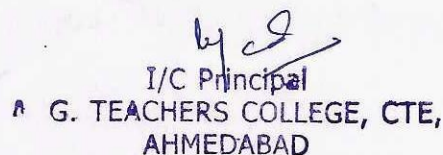 I/C Principal
A G. TEACHERS COLLEGE, CTE,
AHMEDABAD